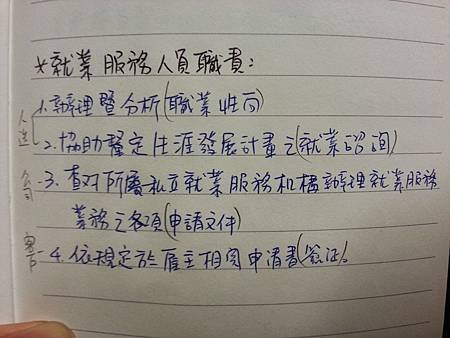 *就業服務人員職責：
人選 1.辦理暨分析(職業性向)
2.協助釐定生涯發展計畫之(就業諮詢)
公司-3.查对所屬私立就業服務机構辦理就業服務
業務之各項(申請文件)
客戶-4.依規定於雇主相関申请書(簽証)。